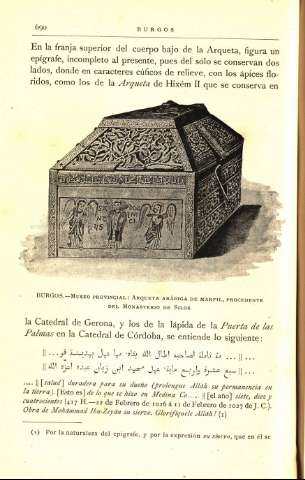 690
BURGOS
En la franja superior del cuerpo bajo de la Arqueta, figura un
epígrafe, incompleto al presente, pues del solo se conservan dos
lados, donde en caracteres cúficos de relieve, con los ápices flo-
ridos, como los de la Arqueta de Hixém II que se conserva en
BURGOS.—MUSEO PROVINCIAL: ARQUETA ARÁBIGA DE MARFIL, PROCEDENTE
DEL MONASTERIO DE SILOS
la Catedral de Gerona, y los de la lápida de la Puerta de las
Palmas en la Catedral de Córdoba, se entiende lo siguiente:
دائمة لصاحبه اطال الله بقاه مما عمل بمدينة قو
سبع عشرة واربع ماية عمل محمد ابن زيان عبده اعزه الله
.... || [salud] duradera para su dueño (prolongue Alláh su permanencia en
la tierra). [Esto es] de lo que se hizo en Medina Co.... || [el año] siete, diez y
cuatrocientos (417 H.—22 de Febrero de 1026 á 11 de Febrero de 1027 de J. C.).
Obra de Mohámmad Ibn-Zeyán su siervo. Glorifíquele Alláh! (1)
(1) Por la naturaleza del epígrafe, y por la expresión su siervo, que en él se